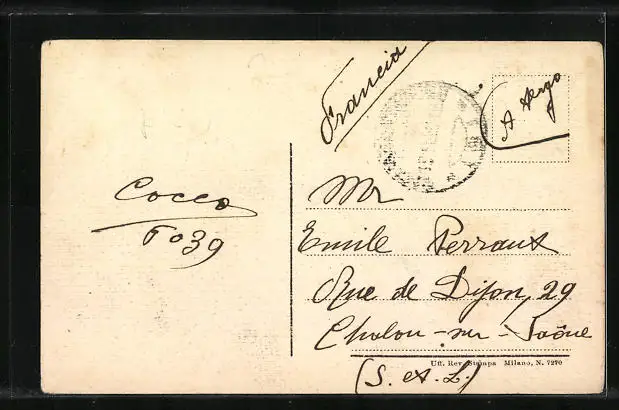 Francia
A tergo
Cocco
6039
Mr
Emile Perraux
Rue de Dijon, 29
Chalon-sur-Saône
Uff. Rev. Stampa Milano, N. 7270
(S. et L.)